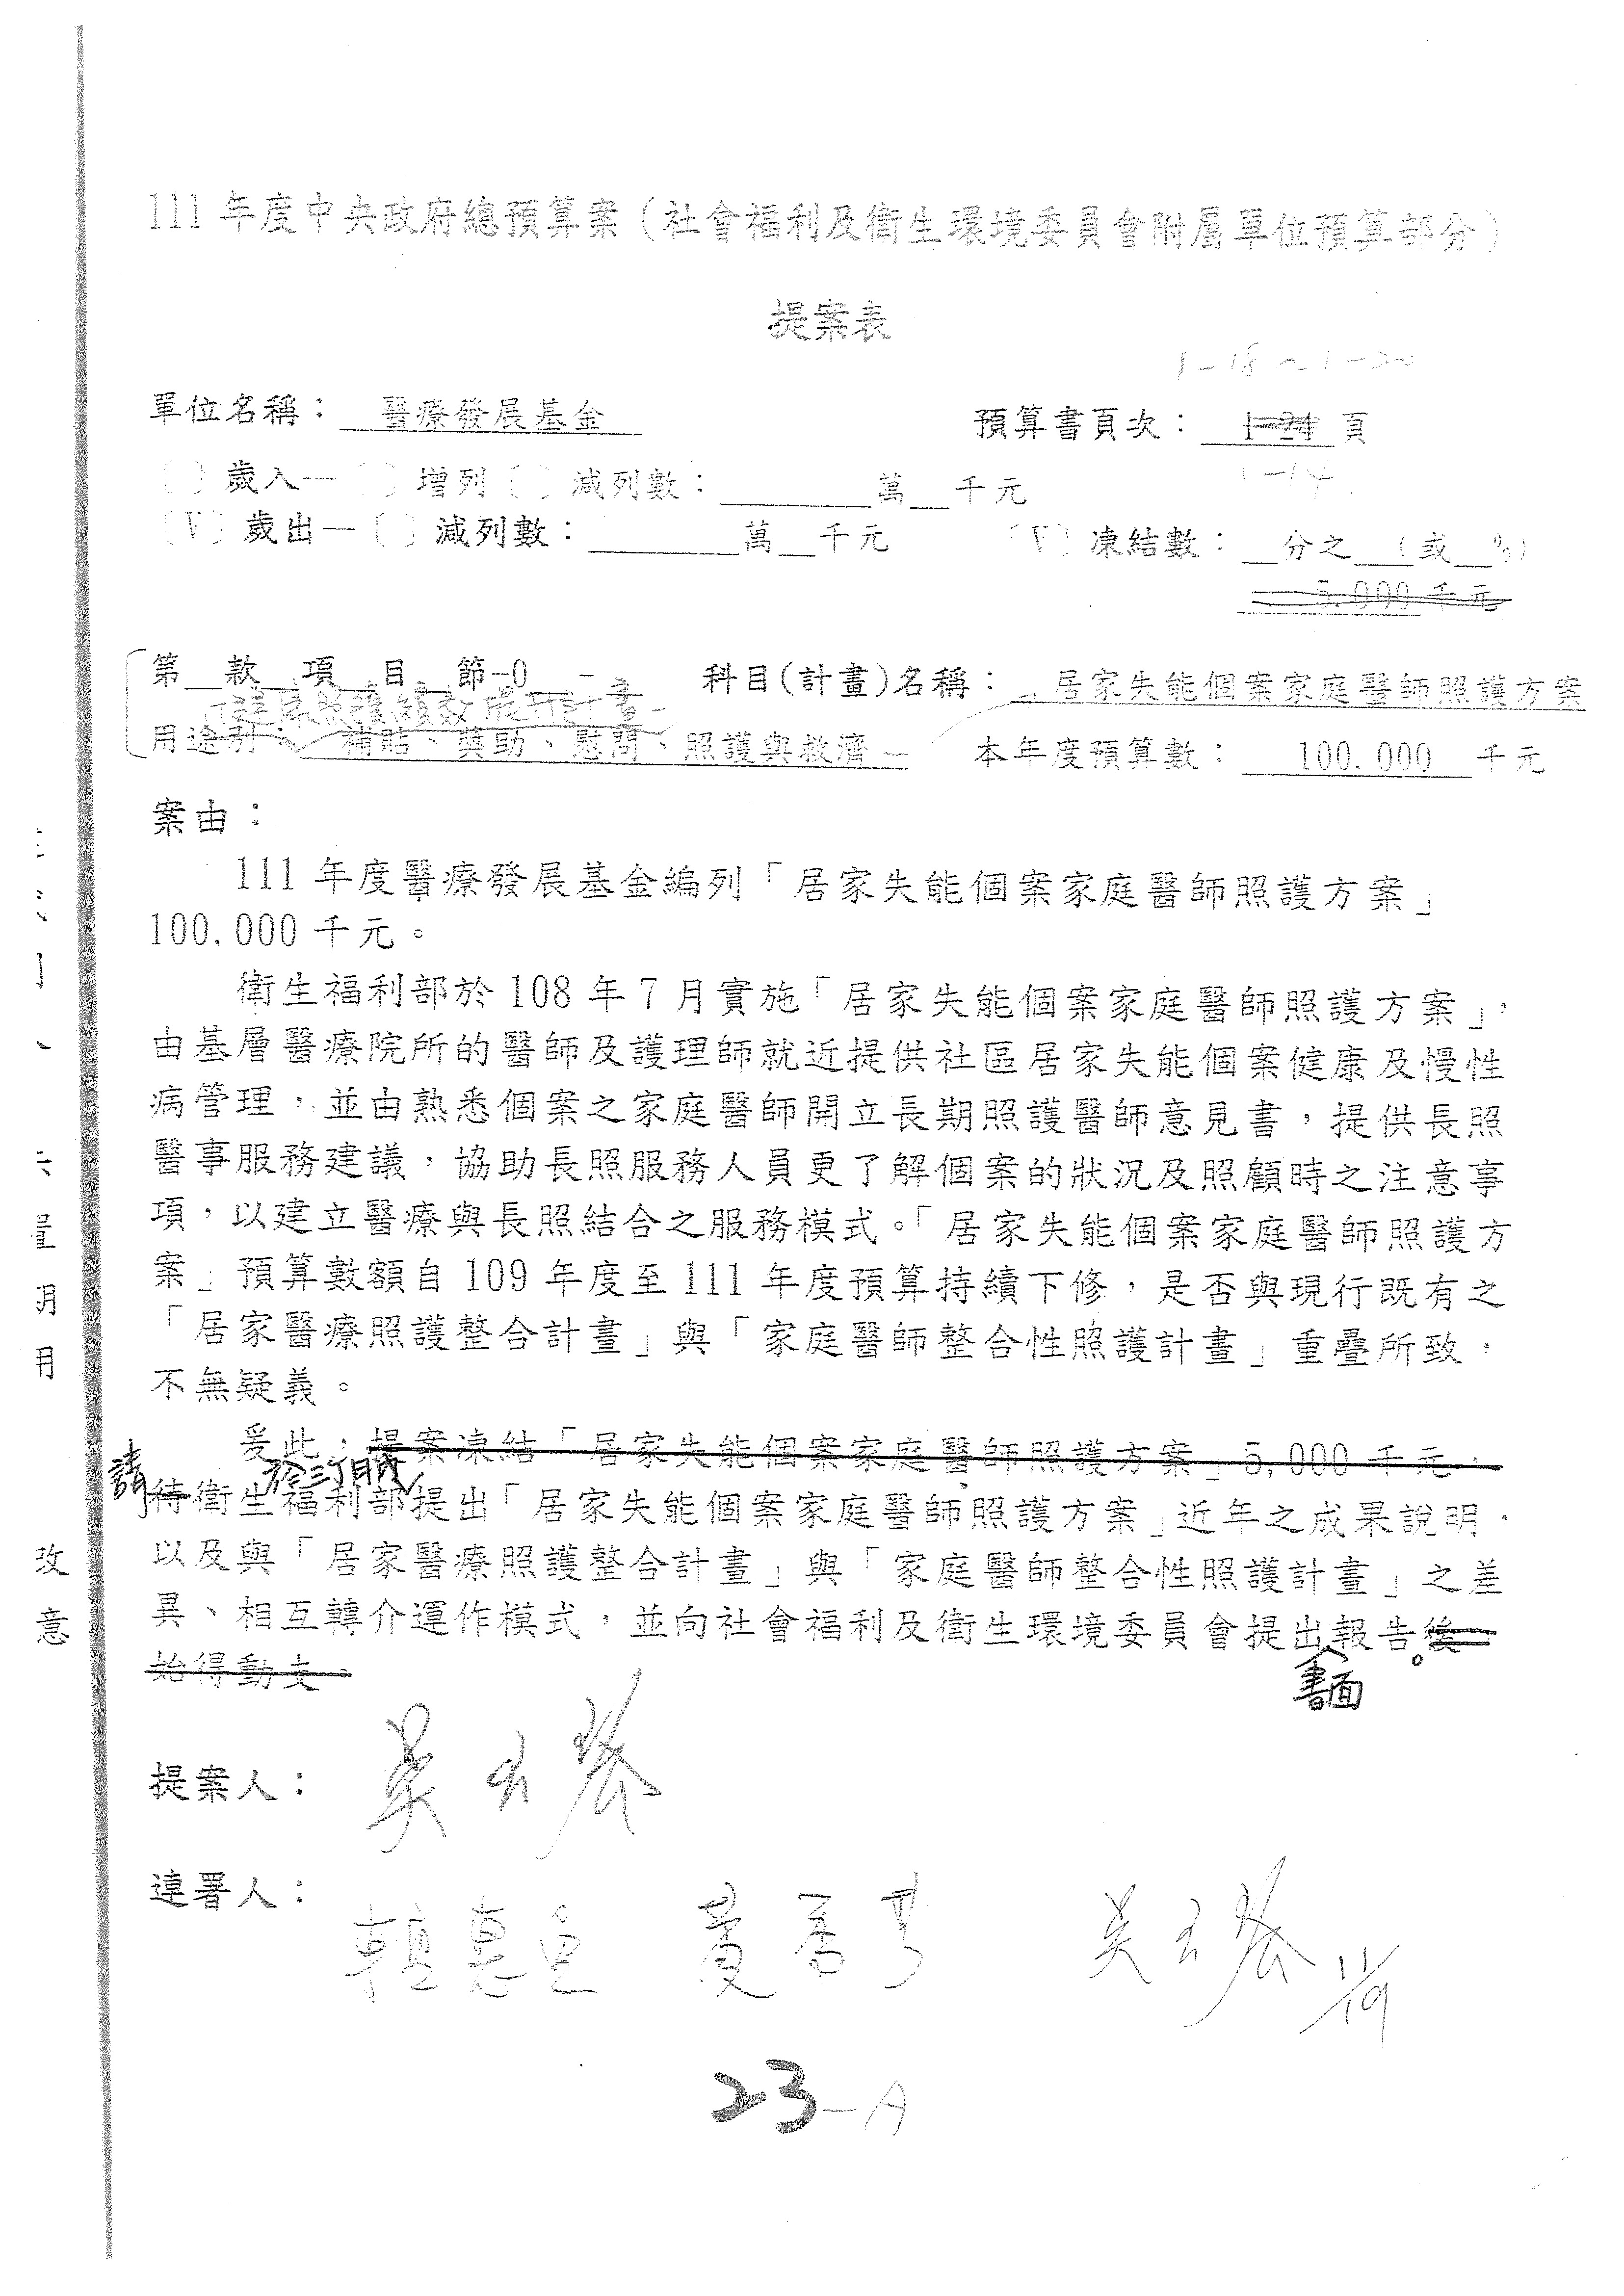 111 年度中央政府總預算案（社會福利及衛生環境委員會附屬單位預算部分）
提案表
1-18~1-20
單位名稱： 醫療發展基金 預算書頁次： 1-24 頁
1-14
〔 〕歲入—〔 〕增列〔 〕減列數：＿＿＿＿萬＿千元
〔V〕歲出—〔 〕減列數：＿＿＿＿萬＿千元 〔V〕凍結數：＿分之＿（或＿%）
5,000 千元
第＿款＿項＿目＿節-0 - 科目(計畫)名稱： 居家失能個案家庭醫師照護方案
用途別： 補貼、獎助、慰問、照護與救濟 本年度預算數： 100,000 千元
案由：
111 年度醫療發展基金編列「居家失能個案家庭醫師照護方案」
100,000 千元。
衛生福利部於 108 年 7 月實施「居家失能個案家庭醫師照護方案」，
由基層醫療院所的醫師及護理師就近提供社區居家失能個案健康及慢性
病管理，並由熟悉個案之家庭醫師開立長期照護醫師意見書，提供長照
醫事服務建議，協助長照服務人員更了解個案的狀況及照顧時之注意事
項，以建立醫療與長照結合之服務模式。「居家失能個案家庭醫師照護方
案」預算數額自 109 年度至 111 年度預算持續下修，是否與現行既有之
「居家醫療照護整合計畫」與「家庭醫師整合性照護計畫」重疊所致，
不無疑義。
爰此，提案凍結「居家失能個案家庭醫師照護方案」5,000 千元，
請
待衛生福利部提出「居家失能個案家庭醫師照護方案」近年之成果說明，
以及與「居家醫療照護整合計畫」與「家庭醫師整合性照護計畫」之差
異、相互轉介運作模式，並向社會福利及衛生環境委員會提出報告後，
書面 。
始得動支。
提案人： 吳玉琴
連署人： 賴惠員 黃秀芳 吳玉琴 11/19
23-A